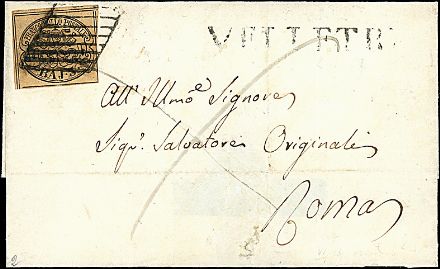 VELLETRI
All' Illmo͞e Signore
Sigr. Salvatore Originali
Roma
2